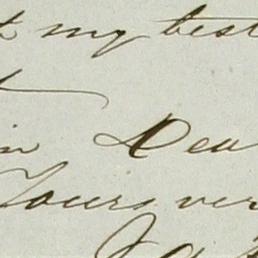 my best
in Dea
Yours ver